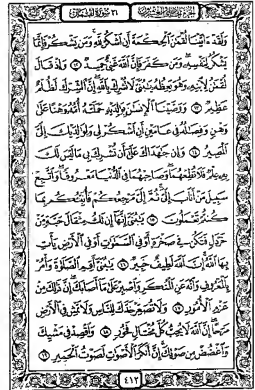 الجزء الحادي والعشرون ٣١ سورة لقمان
وَلَقَدْ ءَاتَيْنَا لُقْمَٰنَ ٱلْحِكْمَةَ أَنِ ٱشْكُرْ لِلَّهِ ۚ وَمَن يَشْكُرْ فَإِنَّمَا
يَشْكُرُ لِنَفْسِهِۦ ۖ وَمَن كَفَرَ فَإِنَّ ٱللَّهَ غَنِىٌّ حَمِيدٌ ١٢ وَإِذْ قَالَ
لُقْمَٰنُ لِٱبْنِهِۦ وَهُوَ يَعِظُهُۥ يَٰبُنَىَّ لَا تُشْرِكْ بِٱللَّهِ ۖ إِنَّ ٱلشِّرْكَ لَظُلْمٌ
عَظِيمٌ ١٣ وَوَصَّيْنَا ٱلْإِنسَٰنَ بِوَٰلِدَيْهِ حَمَلَتْهُ أُمُّهُۥ وَهْنًا عَلَىٰ
وَهْنٍ وَفِصَٰلُهُۥ فِى عَامَيْنِ أَنِ ٱشْكُرْ لِى وَلِوَٰلِدَيْكَ إِلَىَّ
ٱلْمَصِيرُ ١٤ وَإِن جَٰهَدَاكَ عَلَىٰٓ أَن تُشْرِكَ بِى مَا لَيْسَ لَكَ
بِهِۦ عِلْمٌ فَلَا تُطِعْهُمَا ۖ وَصَاحِبْهُمَا فِى ٱلدُّنْيَا مَعْرُوفًا ۖ وَٱتَّبِعْ
سَبِيلَ مَنْ أَنَابَ إِلَىَّ ۚ ثُمَّ إِلَىَّ مَرْجِعُكُمْ فَأُنَبِّئُكُم بِمَا
كُنتُمْ تَعْمَلُونَ ١٥ يَٰبُنَىَّ إِنَّهَآ إِن تَكُ مِثْقَالَ حَبَّةٍ مِّنْ
خَرْدَلٍ فَتَكُن فِى صَخْرَةٍ أَوْ فِى ٱلسَّمَٰوَٰتِ أَوْ فِى ٱلْأَرْضِ يَأْتِ
بِهَا ٱللَّهُ ۚ إِنَّ ٱللَّهَ لَطِيفٌ خَبِيرٌ ١٦ يَٰبُنَىَّ أَقِمِ ٱلصَّلَوٰةَ وَأْمُرْ
بِٱلْمَعْرُوفِ وَٱنْهَ عَنِ ٱلْمُنكَرِ وَٱصْبِرْ عَلَىٰ مَآ أَصَابَكَ ۖ إِنَّ ذَٰلِكَ مِنْ
عَزْمِ ٱلْأُمُورِ ١٧ وَلَا تُصَعِّرْ خَدَّكَ لِلنَّاسِ وَلَا تَمْشِ فِى ٱلْأَرْضِ
مَرَحًا ۖ إِنَّ ٱللَّهَ لَا يُحِبُّ كُلَّ مُخْتَالٍ فَخُورٍ ١٨ وَٱقْصِدْ فِى مَشْيِكَ
وَٱغْضُضْ مِن صَوْتِكَ ۚ إِنَّ أَنكَرَ ٱلْأَصْوَٰتِ لَصَوْتُ ٱلْحَمِيرِ ١٩
٤١٢